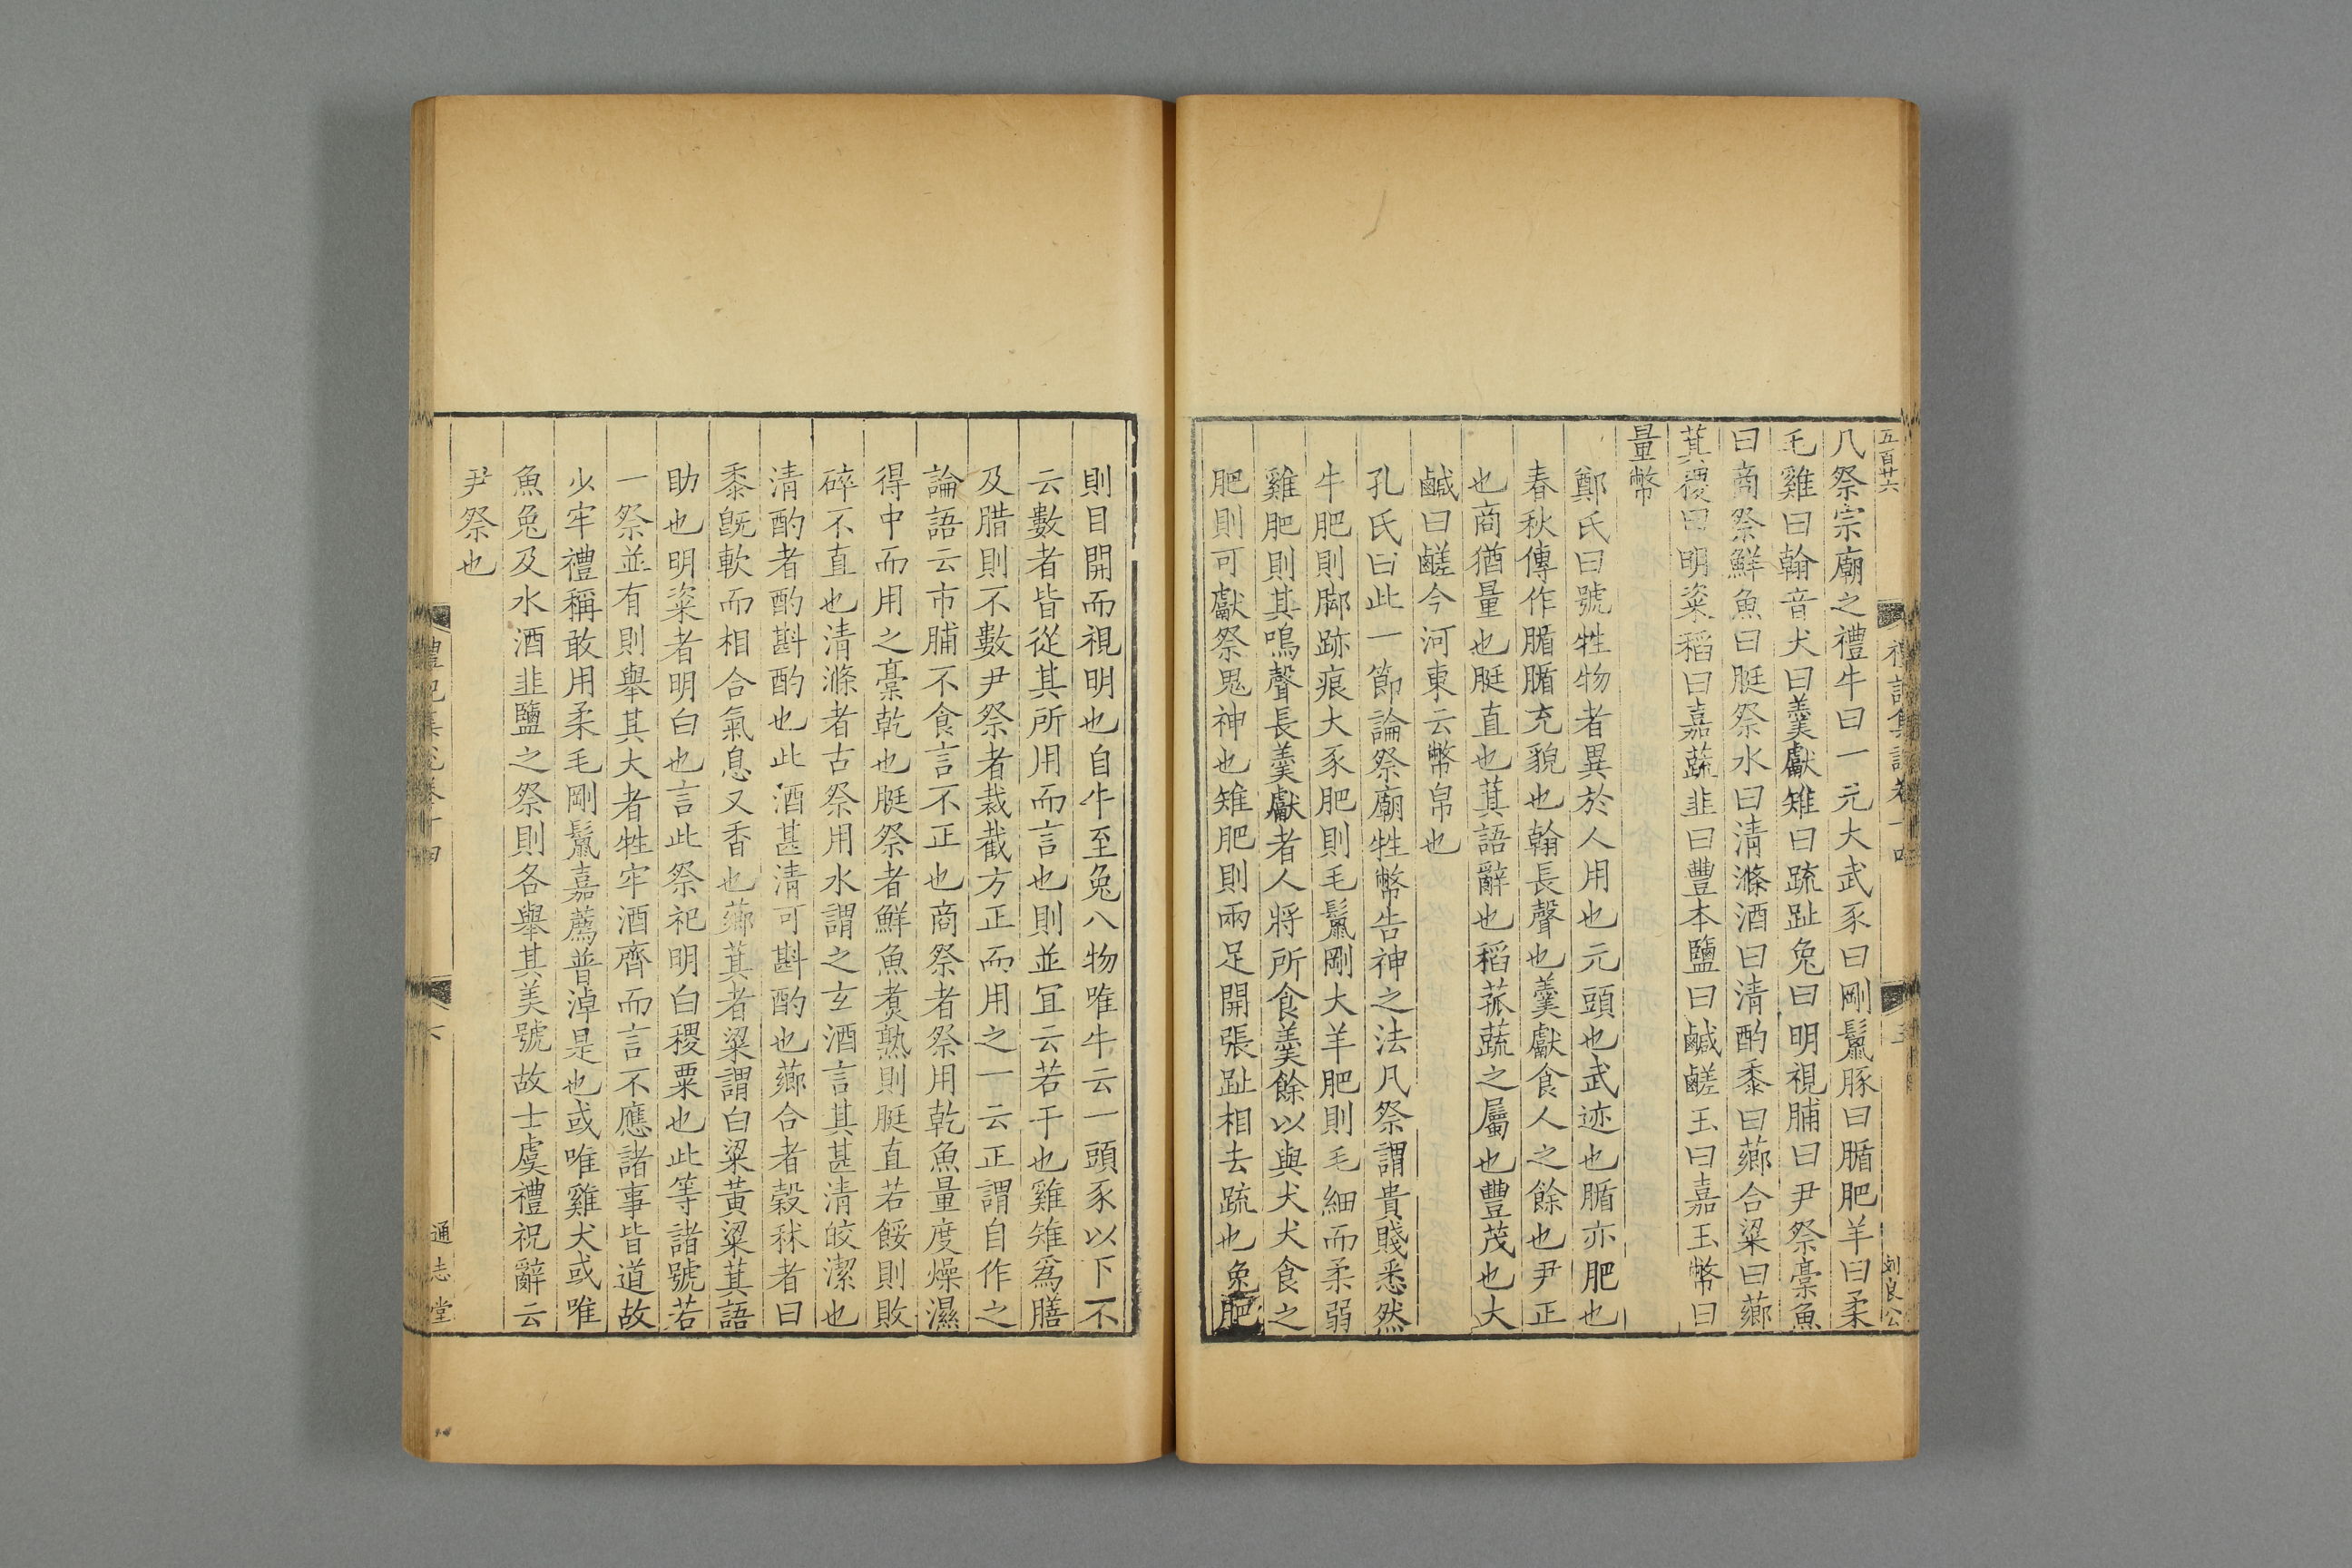 五百廿六
凡祭宗廟之禮牛曰一元大武豕曰剛鬣豚曰腯肥羊曰柔
毛雞曰翰音犬曰羹獻雉曰疏趾兔曰明視脯曰尹祭槀魚
曰商祭鮮魚曰脡祭水曰清滌酒曰清酌黍曰薌合粱曰薌
萁稷曰明粢稻曰嘉蔬韭曰豐本鹽曰鹹鹺玉曰嘉玉幣曰
量幣
鄭氏曰號牲物者異於人用也元頭也武迹也腯亦肥也
春秋傳作腯腯充貌也翰長聲也羹獻食人之餘也尹正
也商猶量也脡直也萁語辭也稻菰蔬之屬也豐茂也大
鹹曰鹺今河東云幣帛也
孔氏曰此一節論祭廟牲幣告神之法凡祭謂貴賤悉然
牛肥則脚跡痕大豕肥則毛鬣剛大羊肥則毛細而柔弱
雞肥則其鳴聲長羹獻者人將所食羹餘以與犬犬食之
肥則可獻祭鬼神也雉肥則兩足開張趾相去疏也兔肥
禮記集說卷十四
五
刘良公
則目開而視明也自牛至兔八物唯牛云一頭豕以下不
云數者皆從其所用而言也則並宜云若干也雞雉爲膳
及腊則不數尹祭者裁截方正而用之一云正謂自作之
論語云市脯不食言不正也商祭者祭用乾魚量度燥濕
得中而用之槀乾也脡祭者鮮魚煑熟則脡直若餒則敗
碎不直也清滌者古祭用水謂之玄酒言其甚清皎潔也
清酌者酌斟酌也此酒甚清可斟酌也薌合者穀秫者曰
黍旣軟而相合氣息又香也薌萁者粱謂白粱黃粱萁語
助也明粢者明白也言此祭祀明白稷粟也此等諸號若
一祭並有則舉其大者牲牢酒齊而言不應諸事皆道故
少牢禮稱敢用柔毛剛鬣嘉薦普淖是也或唯雞犬或唯
魚兔及水酒韭鹽之祭則各舉其美號故士虞禮祝辭云
尹祭也
禮記集說卷十四
六
通志堂